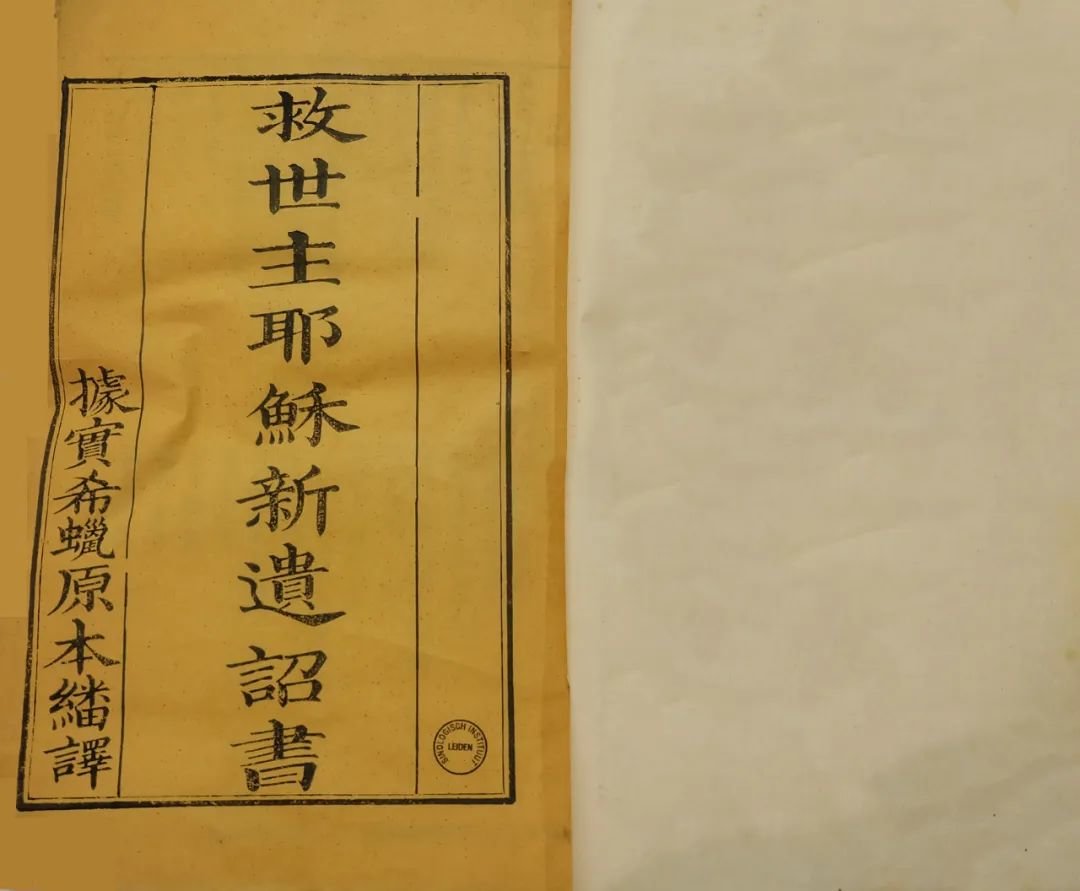 救世主耶穌新遺詔書
據實希蠟原本繙譯
SINOLOGISCH INSTITUUT
LEIDEN